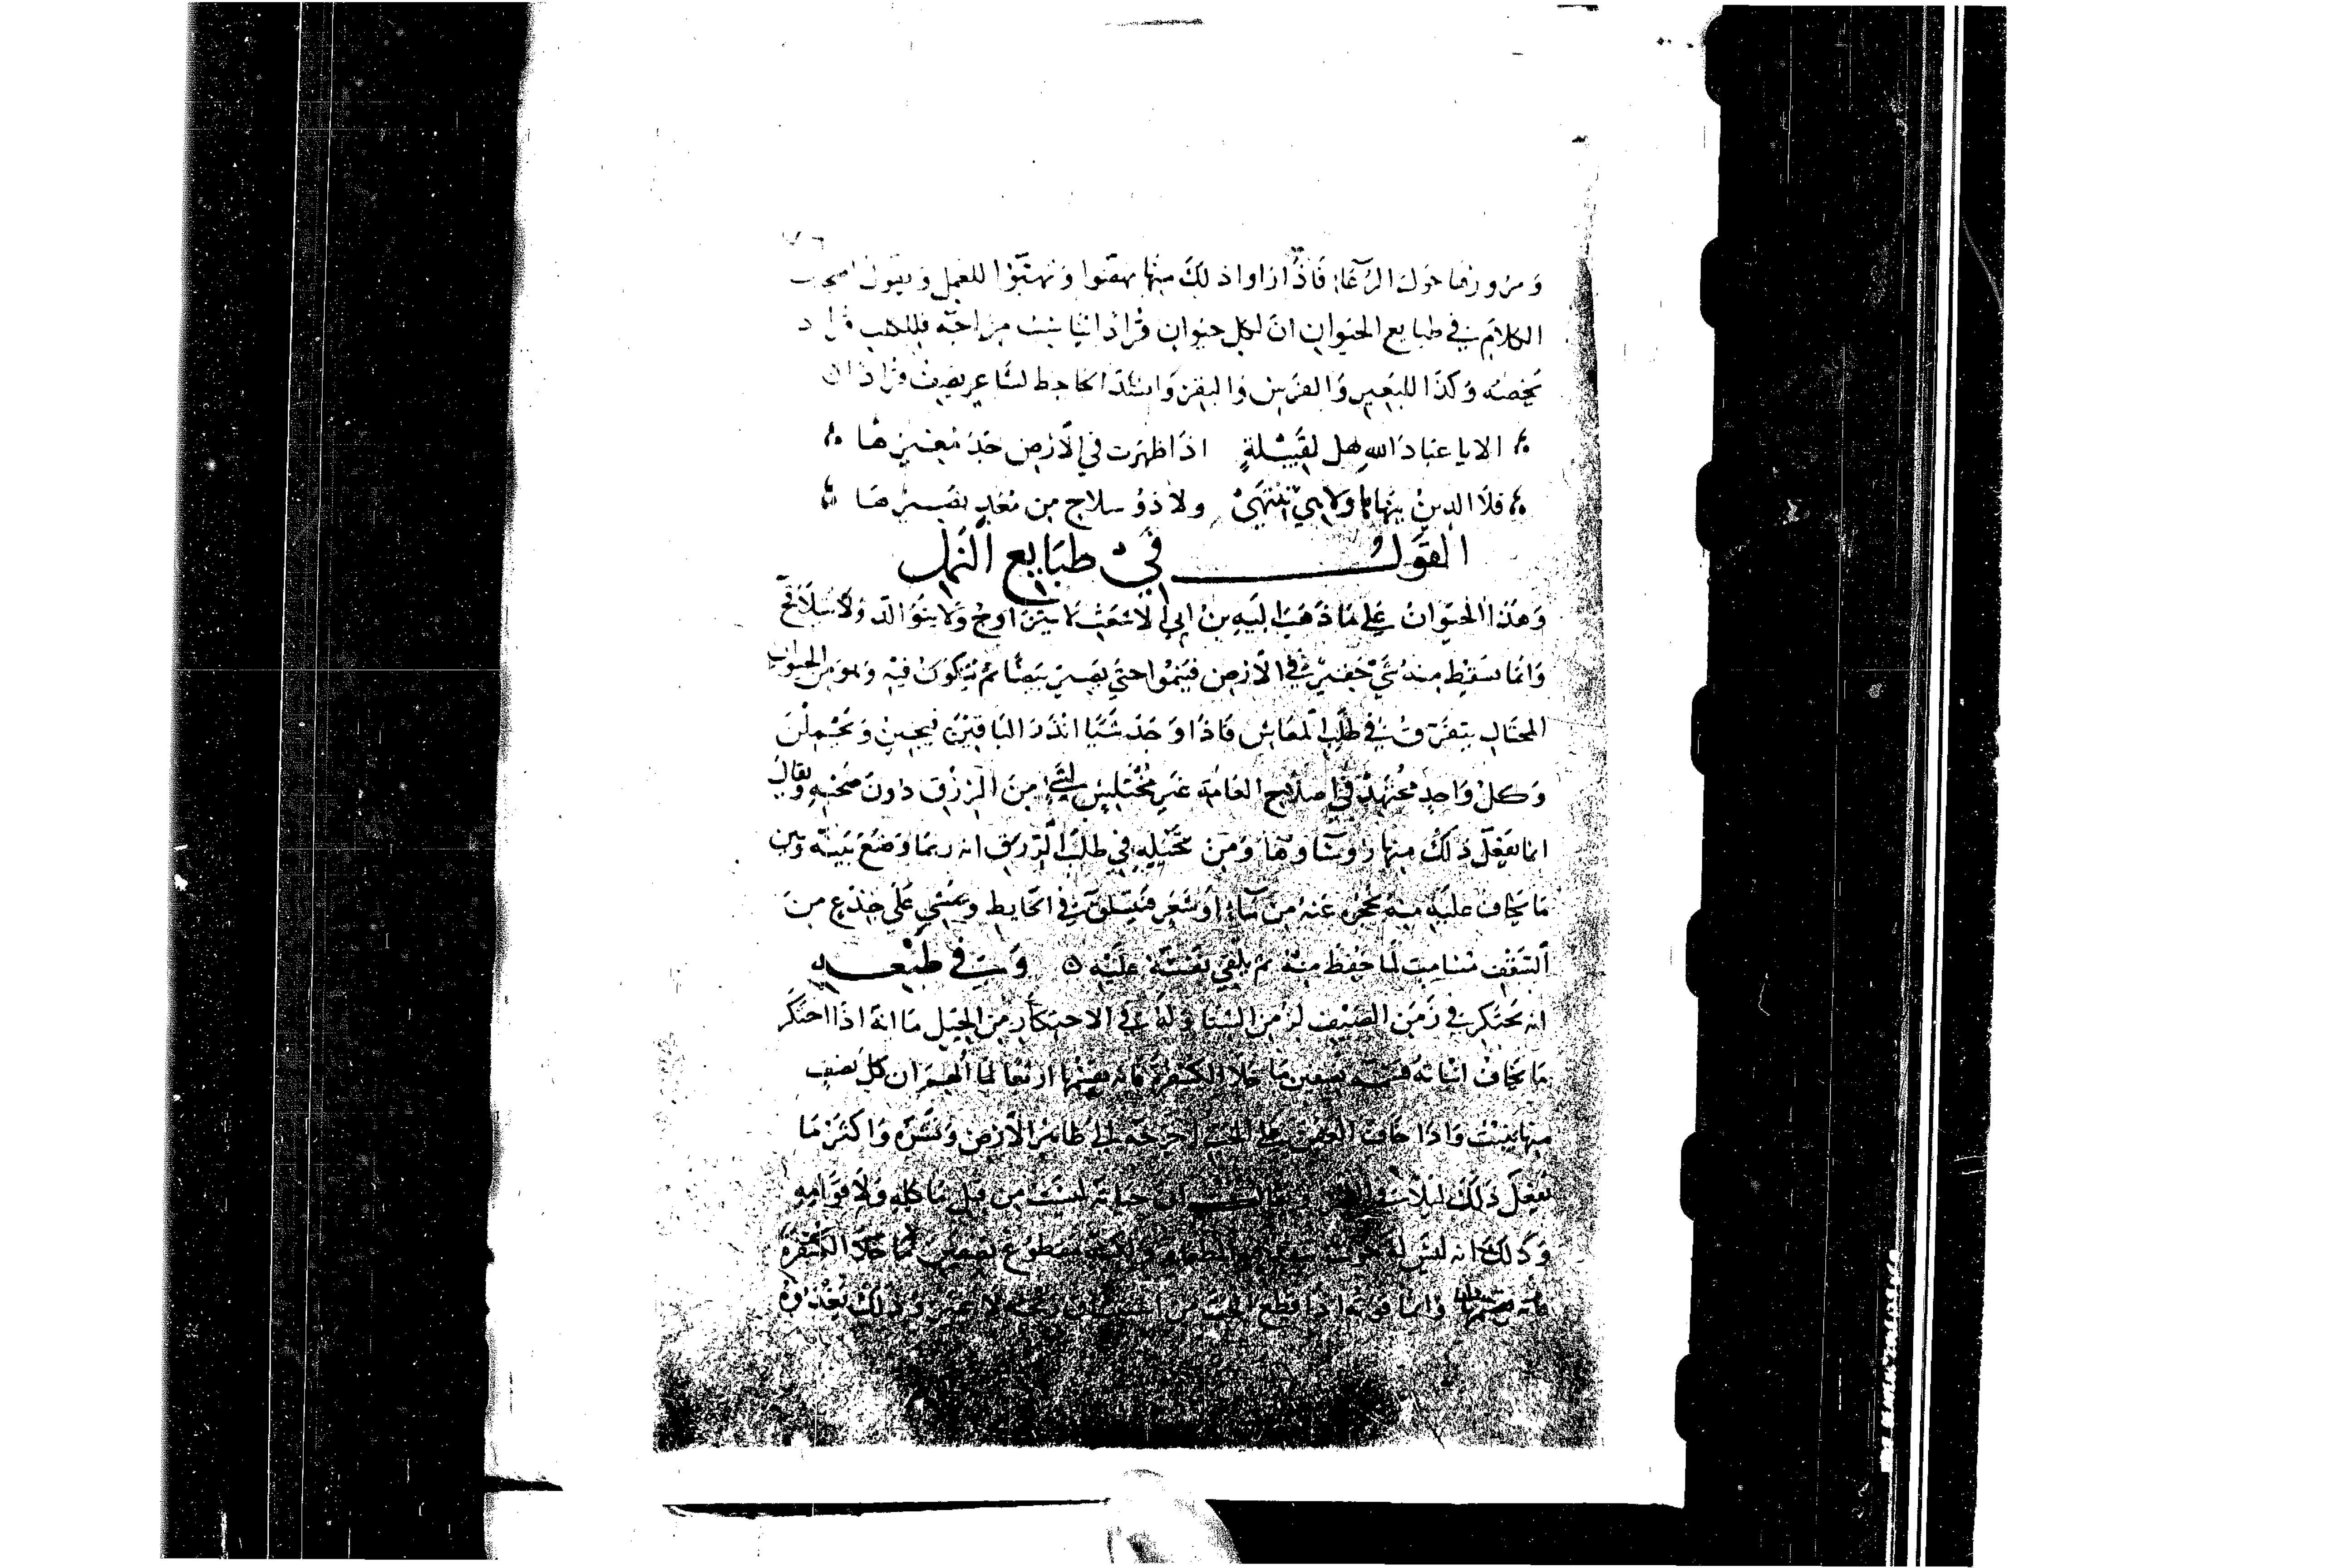 ٧٦
ومرورها حول الرعاء فاذا راوا ذلك منها تهيوا للعمل ويقول اصحاب
الكلام في طبايع الحيوان ان لكل حيوان قرادا يناسب مزاجه فللكلب قراد
يخصه وكذا للبعير والفرس والبقر وانشد الجاحظ لشاعر يصف قرادا
الا يا عباد الله هل لقبيلة اذا ظهرت في الارض جد مغيرها
فلا الدين ينهاها ولا هي تنتهي ولا ذو سلاح من معد يضيرها
القول في طبايع النمل
وهذا الحيوان على ما ذهب اليه بن ابي الاشعث لا يتزاوج ولا يتوالد ولا يتلاقح
وانما يسقط منه شي حقير في الارض فينموا حتى يصير بيضا ثم يتكون فيه وهو من الحيوان
المحتال يتفرق في طلب المعاش فاذا وجد شيا انذر الباقين فيجين ويحملن
وكل واحد مجتهد في اصلاح العامة غير مختلس لشي من الرزق دون صحبه ويقال
انما يفعل ذلك منها روساوها ومن تحيله في طلب الرزق انه ربما وضع بينه وبين
ما يخاف عليه منه ما يحجزه عنه من ماء او شعر فيتسلق في الحايط ويمشي على جذع من
السقف مسامت لما حفظ منه ثم يلقي نفسه عليه ومن في طبعه
انه يحتكر في زمن الصيف لزمن الشتا وله في الاحتكار من الحيل ما انه اذا احتكر
ما يخاف انباته قسمه نصفين ما خلا الكسفرة فانه يقسمها ارباعا لما الهم ان كل نصف
منها ينبت واذا خاف العفن على الحب اخرجه الى ظاهر الارض ونشره واكثر ما
يفعل ذلك ليلا في القمر ويقال ان حياته ليست من قبل ماكله ولا قوامه
وذلك انه ليس له جوف ينفذ فيه الطعام ولكنه مقطوع نصفين ما خلا الكسفرة
فانه يقسمها وانما قوته اذا قطع الحب من استنشاق ريحه لا غير وذلك يغذوه